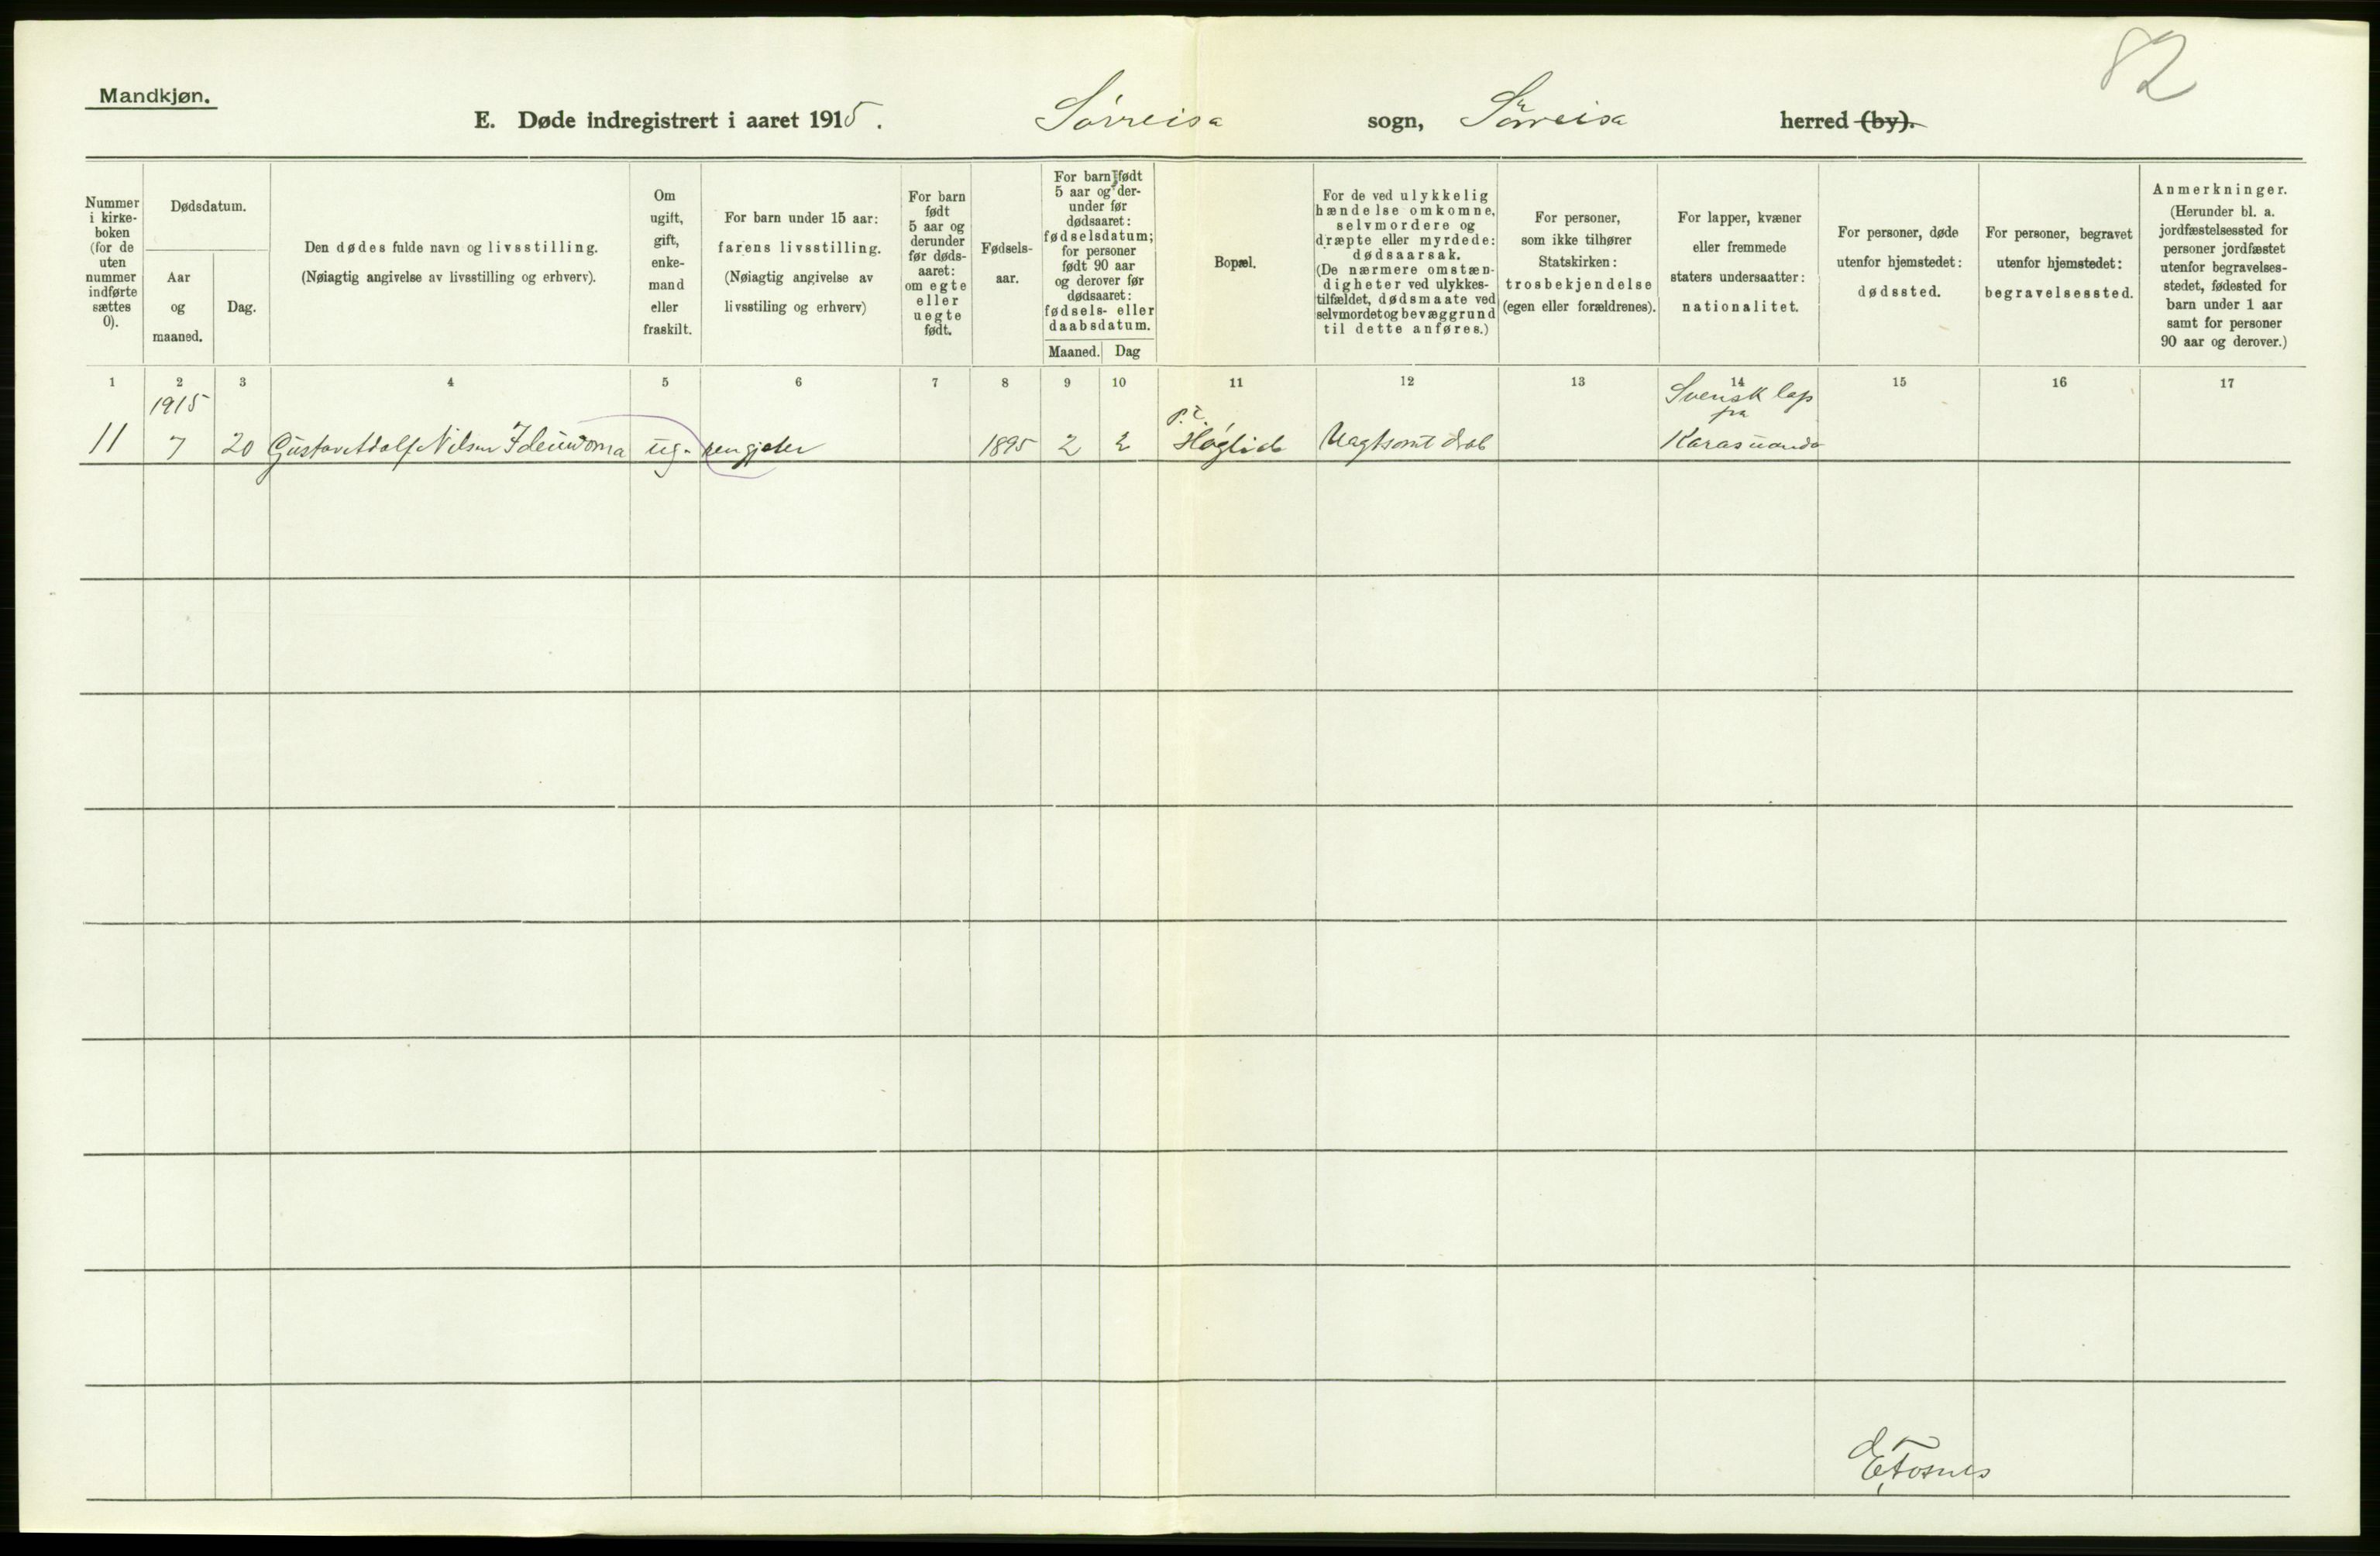 82
Mandkjøn.
E. Døde indregistrert i aaret 1915. Sørreisa sogn, Sørreisa herred (by).
Nummer i kirke-boken (for de uten nummer indførte sættes 0).
Dødsdatum.
Aar og maaned.
Dag.
Den dødes fulde navn og livsstilling.
(Nøiagtig angivelse av livsstilling og erhverv).
Om ugift, gift, enke-mand eller fraskilt.
For barn under 15 aar:
farens livsstilling.
(Nøiagtig angivelse av
livsstiling og erhverv)
For barn født 5 aar og derunder før døds-aaret: om egte eller uegte født.
Fødsels-aar.
For barn født 5 aar og der-under før dødsaaret: fødselsdatum; for personer født 90 aar og derover før dødsaaret: fødsels- eller daabsdatum.
Maaned. Dag
Bopæl.
For de ved ulykkelig hændelse omkomne, selvmordere og dræpte eller myrdede: dødsaarsak.
(De nærmere omstæn-digheter ved ulykkes-tilfældet, dødsmaate ved selvmordet og bevæggrund til dette anføres.)
For personer, som ikke tilhører Statskirken: trosbekjendelse (egen eller forældrenes).
For lapper, kvæner eller fremmede staters undersaatter: nationalitet.
For personer, døde utenfor hjemstedet: dødssted.
For personer, begravet utenfor hjemstedet: begravelsessted.
Anmerkninger.
(Herunder bl. a. jordfæstelsessted for personer jordfæstet utenfor begravelses-stedet, fødested for barn under 1 aar samt for personer 90 aar og derover.)
1 2 3 4 5 6 7 8 9 10 11 12 13 14 15 16 17
1915 Svensk lap
fra
11 7 20 Gustav Adolf Nilsen ug. rengjeter 1895 2 2 Høglid Uagtsomt drab Karasuando